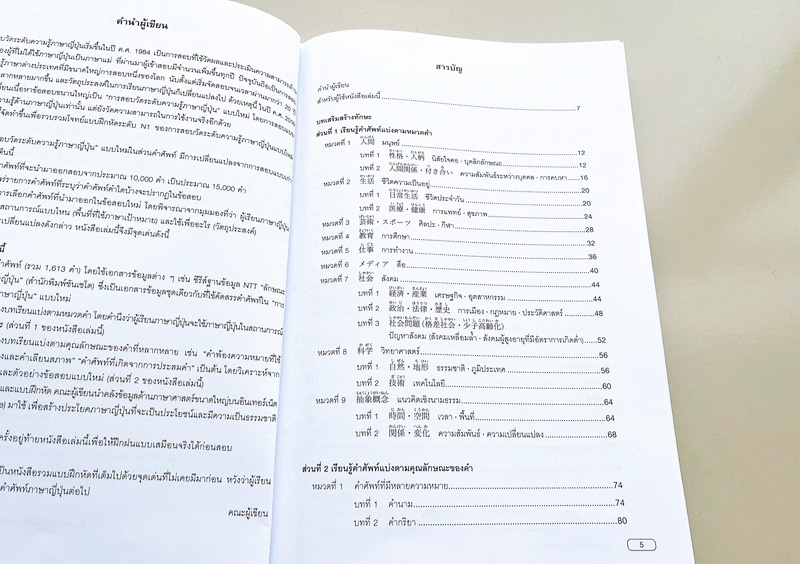 คำนำผู้เขียน
อบวัดระดับความรู้ภาษาญี่ปุ่นเริ่มขึ้นในปี ค.ศ. 1984 เป็นการสอบที่ใช้วัดผลและประเมินความสามารถด้าน
องผู้ที่ไม่ได้ใช้ภาษาญี่ปุ่นเป็นภาษาแม่ ที่ผ่านมาผู้เข้าสอบมีจำนวนเพิ่มขึ้นทุกปี ปัจจุบันถือเป็นการสอบ
รู้ภาษาต่างประเทศที่มีขนาดใหญ่การสอบหนึ่งของโลก นับตั้งแต่เริ่มจัดสอบจนเวลาผ่านมากว่า 20 ปี
ลากหลายมากขึ้น และวัตถุประสงค์ในการเรียนภาษาญี่ปุ่นก็เปลี่ยนแปลงไป ด้วยเหตุนี้ ในปี ค.ศ. 2010
ลี่ยนเนื้อหาข้อสอบขนานใหญ่เป็น "การสอบวัดระดับความรู้ภาษาญี่ปุ่น" แบบใหม่ โดยการสอบแบบ
รู้ด้านภาษาญี่ปุ่นเท่านั้น แต่ยังวัดความสามารถในการใช้งานจริงอีกด้วย
จัดทำขึ้นเพื่อรวบรวมโจทย์แบบฝึกหัดระดับ N1 ของการสอบวัดระดับความรู้ภาษาญี่ปุ่นแบบใหม่
อบวัดระดับความรู้ภาษาญี่ปุ่น" แบบใหม่ในส่วนคำศัพท์ มีการเปลี่ยนแปลงจากการสอบแบบเก่า
ดังนี้
คำศัพท์ที่จะนำมาออกสอบจากประมาณ 10,000 คำ เป็นประมาณ 15,000 คำ
ร่รายการคำศัพท์ที่ระบุว่าคำศัพท์คำใดบ้างจะปรากฏในข้อสอบ
การเลือกคำศัพท์ที่นำมาออกในข้อสอบใหม่ โดยพิจารณาจากมุมมองที่ว่า ผู้เรียนภาษาญี่ปุ่น
สถานการณ์แบบไหน (พื้นที่ที่ใช้ภาษาเป้าหมาย) และใช้เพื่ออะไร (วัตถุประสงค์)
เปลี่ยนแปลงดังกล่าว หนังสือเล่มนี้จึงมีจุดเด่นดังนี้
นี้
ศัพท์ (รวม 1,613 คำ) โดยใช้เอกสารข้อมูลต่าง ๆ เช่น ซีรีส์ฐานข้อมูล NTT "ลักษณะ
าญี่ปุ่น" (สำนักพิมพ์ซันเซโด) ซึ่งเป็นเอกสารข้อมูลชุดเดียวกับที่ใช้คัดสรรคำศัพท์ใน "การ
าญี่ปุ่น" แบบใหม่
งบทเรียนแบ่งตามหมวดคำ โดยคำนึงว่าผู้เรียนภาษาญี่ปุ่นจะใช้ภาษาในสถานการณ์
ร (ส่วนที่ 1 ของหนังสือเล่มนี้)
งบทเรียนแบ่งตามคุณลักษณะของคำที่หลากหลาย เช่น "คำพ้องความหมายที่ใช้
งและคำเลียนสภาพ" "คำศัพท์ที่เกิดจากการประสมคำ" เป็นต้น โดยวิเคราะห์จาก
และตัวอย่างข้อสอบแบบใหม่ (ส่วนที่ 2 ของหนังสือเล่มนี้)
และแบบฝึกหัด คณะผู้เขียนนำคลังข้อมูลด้านภาษาศาสตร์ขนาดใหญ่บนอินเทอร์เน็ต
) มาใช้ เพื่อสร้างประโยคภาษาญี่ปุ่นที่จะเป็นประโยชน์และมีความเป็นธรรมชาติ
ครั้งอยู่ท้ายหนังสือเล่มนี้เพื่อให้ฝึกฝนแบบเสมือนจริงได้ก่อนสอบ
ป็นหนังสือรวมแบบฝึกหัดที่เต็มไปด้วยจุดเด่นที่ไม่เคยมีมาก่อน หวังว่าผู้เรียน
คำศัพท์ภาษาญี่ปุ่นต่อไป
คณะผู้เขียน
สารบัญ
คำนำผู้เขียน
สำหรับผู้ใช้หนังสือเล่มนี้ 7
บทเสริมสร้างทักษะ
ส่วนที่ 1 เรียนรู้คำศัพท์แบ่งตามหมวดคำ
หมวดที่ 1 人間 มนุษย์ 12
บทที่ 1 性格・人柄 นิสัยใจคอ · บุคลิกลักษณะ 12
บทที่ 2 人間関係・付き合い ความสัมพันธ์ระหว่างบุคคล · การคบหา 16
หมวดที่ 2 生活 ชีวิตความเป็นอยู่ 20
บทที่ 1 日常生活 ชีวิตประจำวัน 20
บทที่ 2 医療・健康 การแพทย์ · สุขภาพ 24
หมวดที่ 3 芸術・スポーツ ศิลปะ · กีฬา 28
หมวดที่ 4 教育 การศึกษา 32
หมวดที่ 5 仕事 การทำงาน 36
หมวดที่ 6 メディア สื่อ 40
หมวดที่ 7 社会 สังคม 44
บทที่ 1 経済・産業 เศรษฐกิจ · อุตสาหกรรม 44
บทที่ 2 政治・法律・歴史 การเมือง · กฎหมาย · ประวัติศาสตร์ 48
บทที่ 3 社会問題 (格差社会・少子高齢化)
ปัญหาสังคม (สังคมเหลื่อมล้ำ · สังคมผู้สูงอายุที่มีอัตราการเกิดต่ำ) 52
หมวดที่ 8 科学 วิทยาศาสตร์ 56
บทที่ 1 自然・地形 ธรรมชาติ · ภูมิประเทศ 56
บทที่ 2 技術 เทคโนโลยี 60
หมวดที่ 9 抽象概念 แนวคิดเชิงนามธรรม 64
บทที่ 1 時間・空間 เวลา · พื้นที่ 64
บทที่ 2 関係・変化 ความสัมพันธ์ · ความเปลี่ยนแปลง 68
ส่วนที่ 2 เรียนรู้คำศัพท์แบ่งตามคุณลักษณะของคำ
หมวดที่ 1 คำศัพท์ที่มีหลายความหมาย 74
บทที่ 1 คำนาม 74
บทที่ 2 คำกริยา 80
5